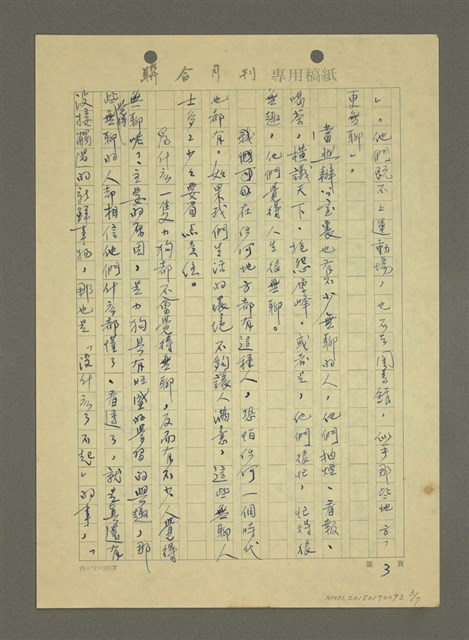 聯合月刊 專用稿紙
」。他們既不上運動場，也不去圖書館，似乎那些地方「
更無聊」。
當然辦公室裏也有不少無聊的人，他們抽煙、看報、
喝茶，橫議天下、抱怨連連。或者是，他們很忙，忙得很
無趣，他們覺得人生很無聊。
我們中國在任何地方都有這種人，恐怕任何一個時代
也都有。如果我們生活的環境不夠讓人滿意，這些無聊人
士多多少少要負點責任。
為什麼一隻大狗都不會覺得無聊，反而有不少人覺得
無聊呢？主要的原因，是大狗具有旺盛的學習的興趣，那
些無聊的人都相信他們什麼都懂了、看透了，就是真還有
沒接觸過的新鮮事物，那也是「沒什麼了不起」的事，「
第 3 頁
NMTL20150170093 3/7